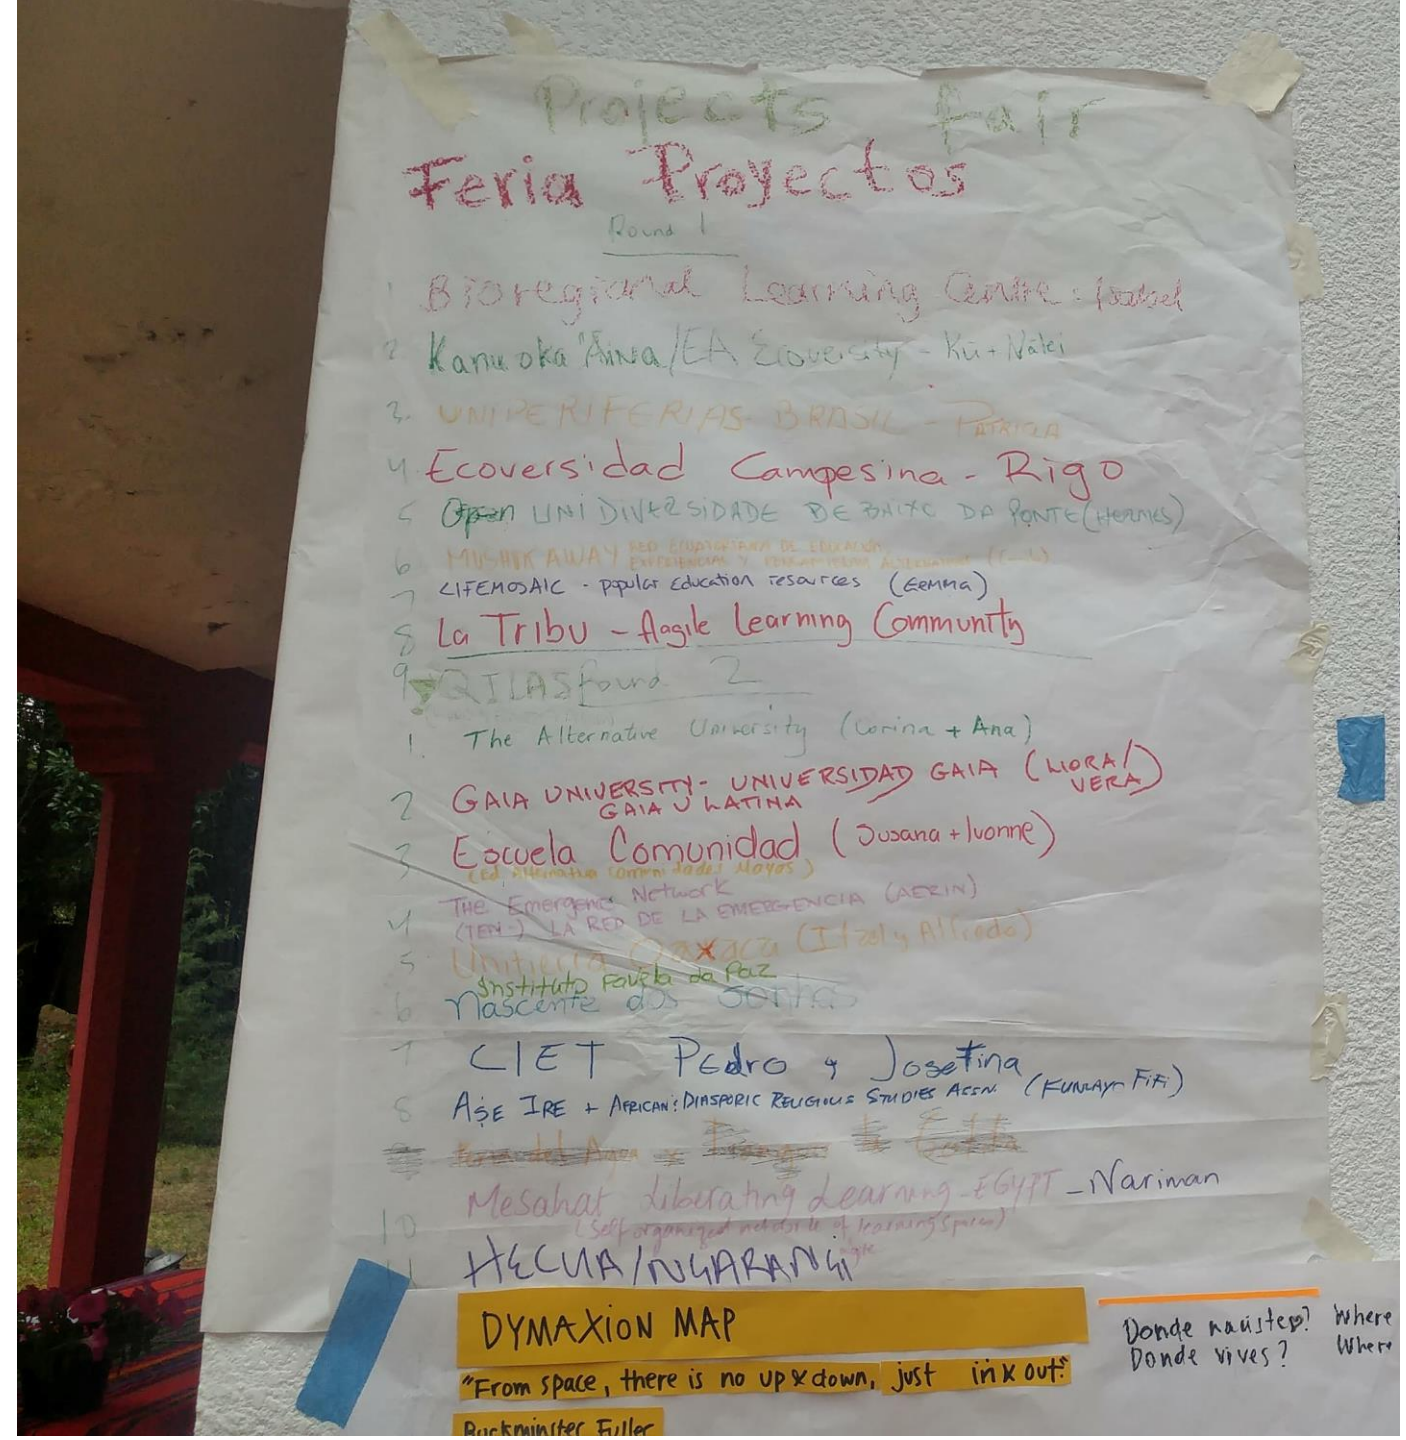 Projects fair
Feria Proyectos
Round 1
1 Bioregional Learning Centre - Isabel
2 Kanu oka ʻĀina/EA Ecoversity - Kū + Nālei
3. UNIPERIFERIAS - BRASIL - PATRICIA
4 Ecoversidad Campesina - Rigo
5 Open UNIDIVERSIDADE DE BAIXO DA PONTE (HERMES)
6 MUSHUK AWAY RED ECUATORIANA DE EDUCACIÓN
EXPERIENCIAL Y
7 LIFEMOSAIC - popular education resources (GEMMA)
8 La Tribu - Agile Learning Community
9. QILAS
Round 2
1. The Alternative University (Corina + Ana)
2 GAIA UNIVERSITY - UNIVERSIDAD GAIA (LIORA/
VERA)
GAIA U LATINA
3 Escuela Comunidad (Susana + Ivonne)
(Ed. Alternativa Comunidades Mayas)
4 The Emergence Network
(TEN-) LA RED DE LA EMERGENCIA (AERIN)
5 Unitierra Oaxaca (Itzel y Alfredo)
Instituto Favela da Paz
6 Nascente dos Sonhos
7 CIET Pedro y Josefina
8 AṢE IRE + AFRICAN & DIASPORIC RELIGIOUS STUDIES ASSN. (FUNLAYO FiFi)
Mesahat Liberating Learning - EGYPT - Nariman
10 (Self organized network of learning spaces)
11 HECUA/NGARANGI
DYMAXION MAP
"From space, there is no up & down, just in & out."
Buckminster Fuller
Donde naciste? Where
Donde vives? Where